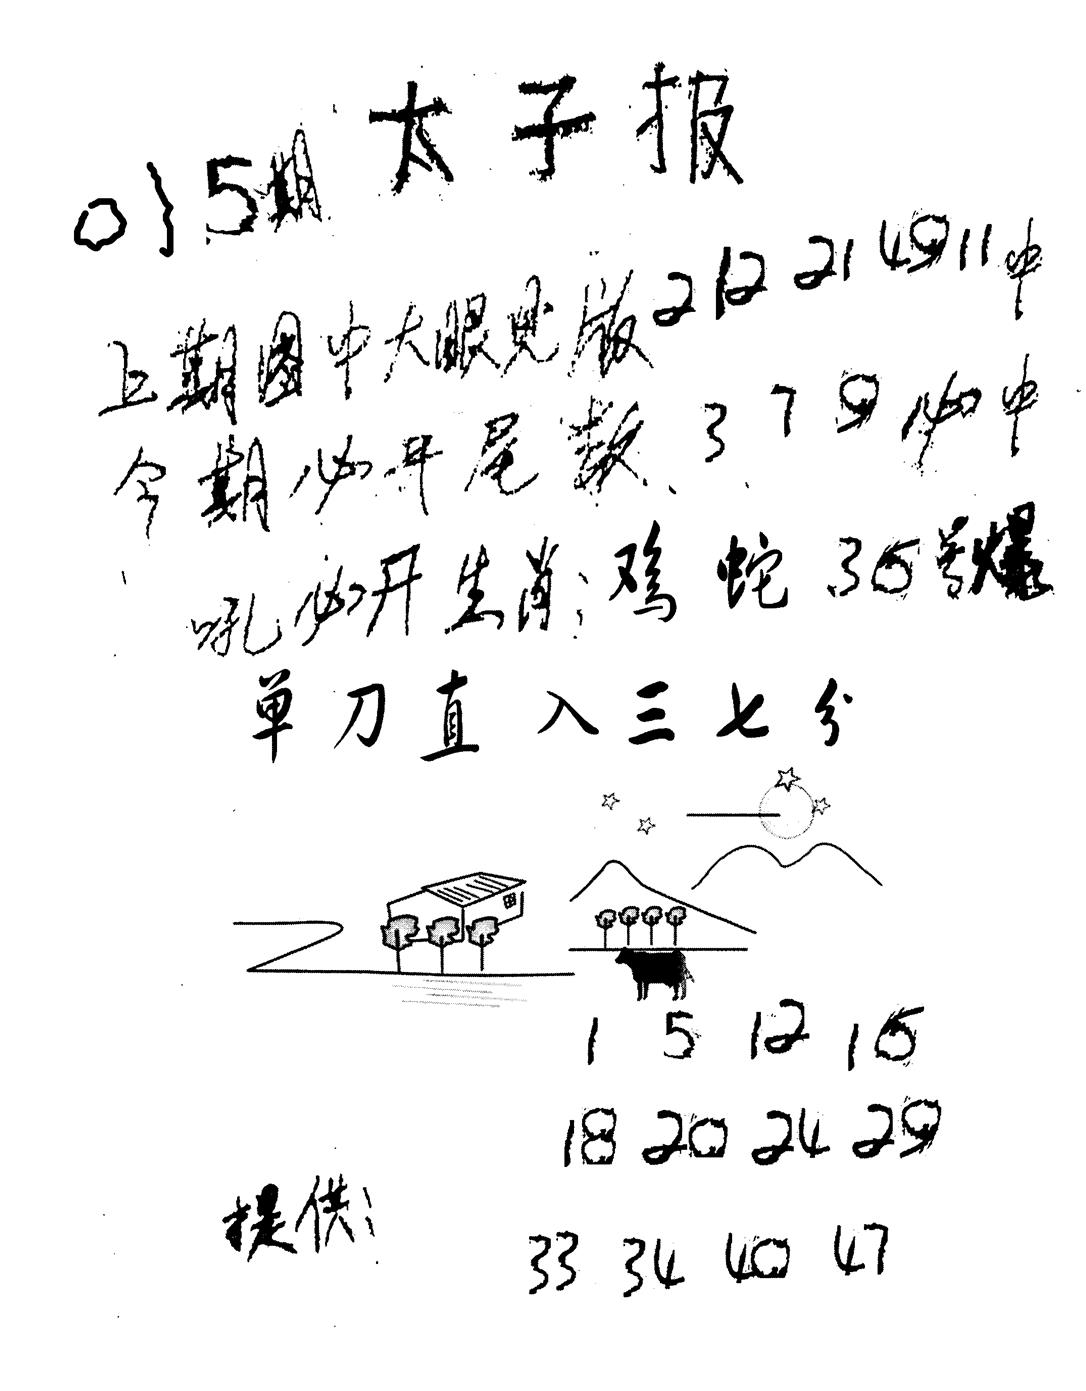 太子报
015期
上期图中大眼见版 2 12 21 49 11 中
今期必开尾数 3 7 9 必中
吼必开生肖: 鸡 蛇 36号爆
单刀直入三七分
1 5 12 16
18 20 24 29
提供:
33 34 40 47